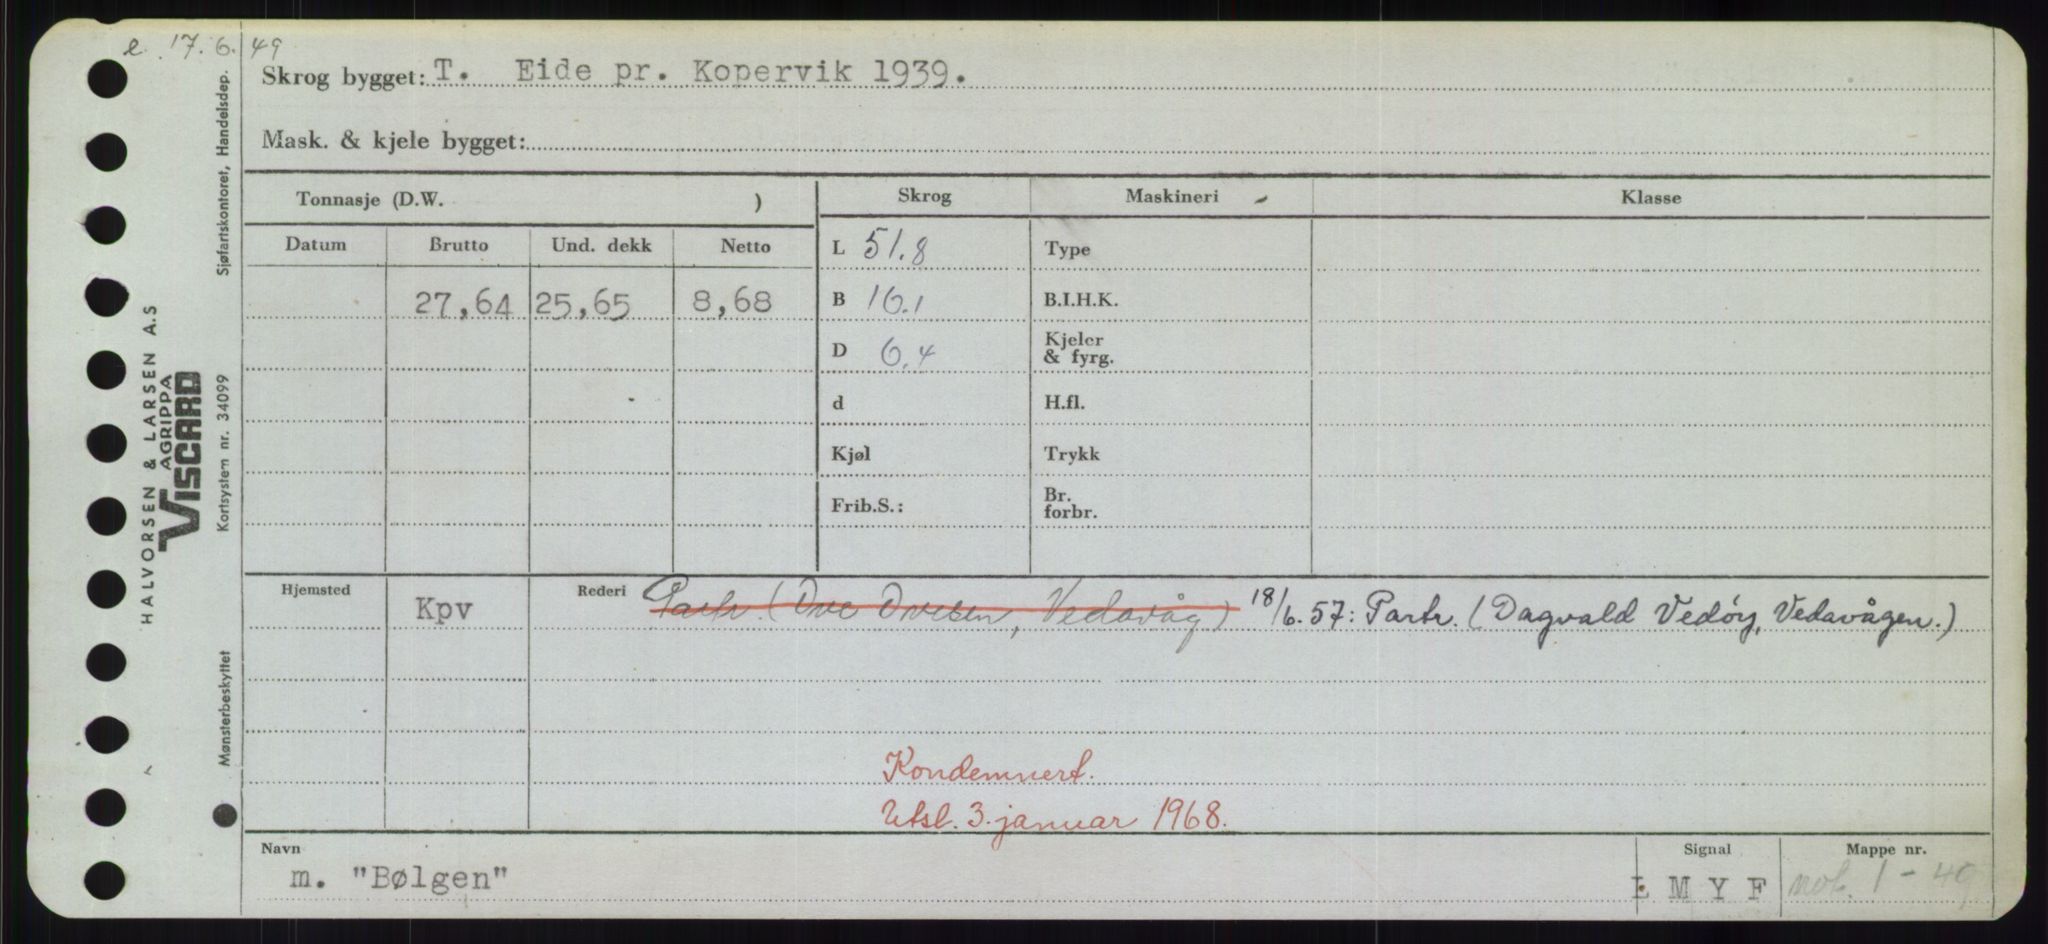 e. 17.6.49
Skrog bygget: T. Eide pr. Kopervik 1939.
Mask. & kjele bygget:
Tonnasje (D.W. )
Skrog
Maskineri
Klasse
Datum
Brutto
Und. dekk
Netto
27,64
25,65
8,68
L 51.8
B 16.1
D 6.4
d
Kjøl
Frib.S.:
Type
B.I.H.K.
Kjeler
& fyrg.
H.fl.
Trykk
Br.
forbr.
Hjemsted
Kpv
Rederi
Partr. (Ove Ovesen, Vedavåg) 18/6.57: Partr. (Dagvald Vedøy, Vedavågen.)
Kondemnert.
Utsl. 3. januar 1968.
Navn
m. "Bølgen"
Signal
L M Y F
Mappe nr.
not. 1 - 49
HALVORSEN & LARSEN A.S
AGRIPPA
VISCARD
Sjøfartskontoret, Handelsdep.
Kortsystem nr. 34099
Mønsterbeskyttet